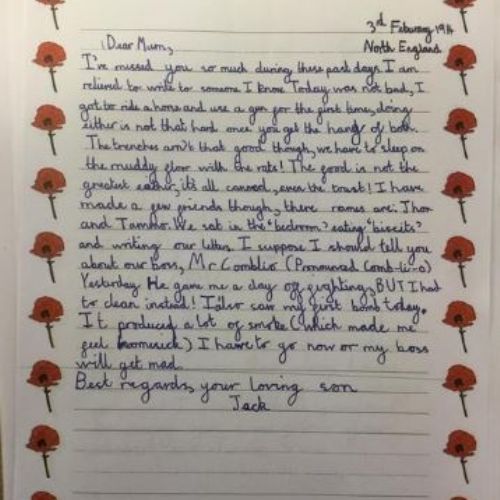 3rd February 1914
Dear Mum, North England
I've missed you so much during these past days. I am
relieved to write to someone I know. Today was not bad, I
got to ride a horse and use a gun for the first time, doing
either is not that hard once you get the hang of both.
The trenches arn't that good though, we have to sleep on
the muddy floor with the rats! The food is not the
greatest either, it's all canned, even the I have
made a few friends though, there names are: Jhon
and We sat in the "bedroom" eating "biscits"
and writing our letters. I suppose I should tell you
about our boss, Mr Comblio (Pronounced Comb-li-o)
Yesterday He gave me a day off fighting, BUT I had
to clean instead! I also saw my first bomb today.
It produced a lot of smoke (which made me
feel ) I have to go now or my boss
will get mad.
Best regards, your loving son
Jack